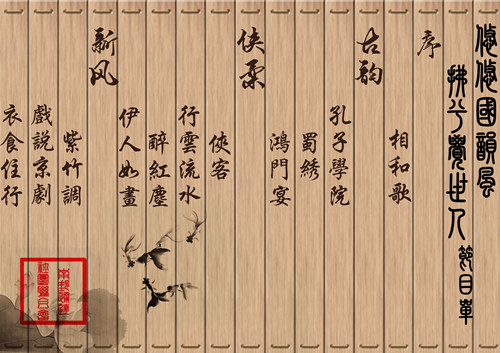 悠悠國韻风
拂兮世人 節目單
序
相和歌
古韵
孔子學院
蜀綉
鴻門宴
侠柔
俠客
行雲流水
醉紅塵
伊人如畫
新风
紫竹調
戲說京劇
衣食住行